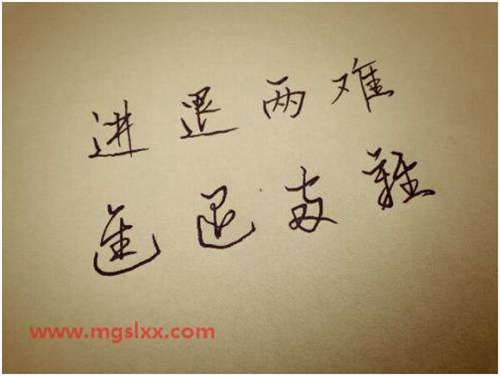 进退两难
進退兩難
www.mgslxx.com